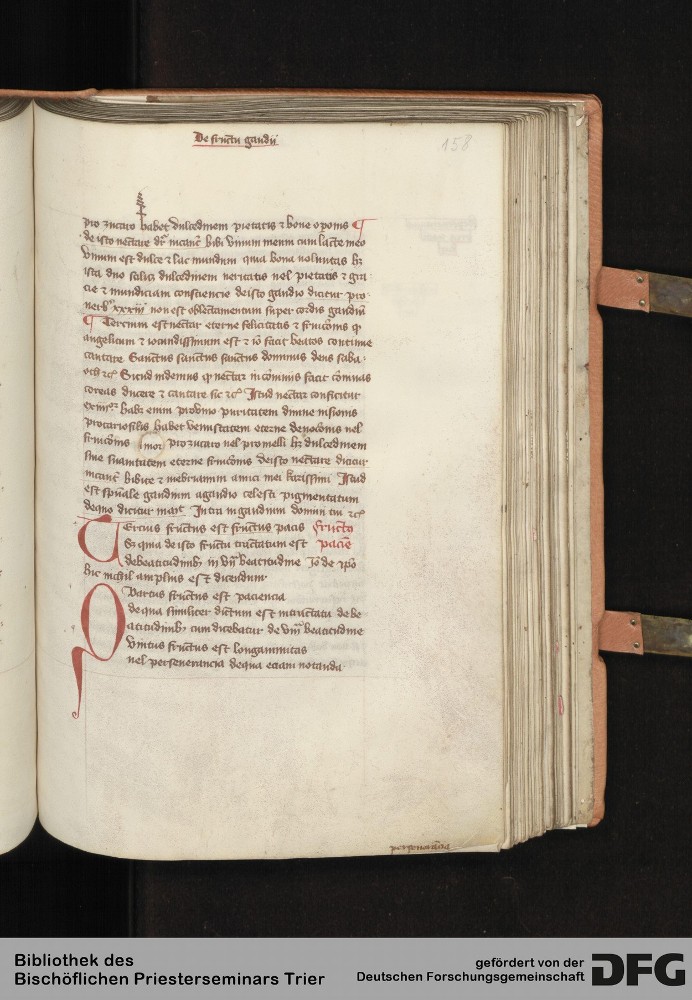 De fructu gaudii
158
pro zucaro habet dulcedinem pietatis et bone opīonis
de isto nectare dr̄ in cant̄ bibi vinum meum cum lacte meo
vinum est dulce et lac mundum quia bona voluntas hȝ
ista duo scilicȝ dulcedinem veritatis vel pietatis et gr̄
cie et mundiciam consciencie de isto gaudio dicitur pro
verbꝰ xxxiij non est oblectamentum super cordis gaudiū
Tercium est nectar eterne felicitatis et fruicōnis qꝫ
angelicum et iocundissimum est et iō facit beatos continue
cantare Sanctus sanctus sanctus dominus deus saba
oth ⁊cͣ Sicud videmus qꝫ nectar in cōmuis facit cōmuas
coreas ducere et cantare sic ⁊cͣ Istud nectar conficitur
habȝ enim pro vino puritatem diuine visionis
pro cariofilis habet venustatem eterne deuocōnis vel
fruicōnis pro zucaro vel pro melli hȝ dulcedinem
siue suauitatem eterne fruicōnis de isto nectare dicitur
in cant̄ bibite et inebriamini amici mei karissimi Istud
est spūale gaudium a gaudio celesti pigmentatum
de quo dicitur mat̄ Intra in gaudium domini tui ⁊cͣ
Tercius fructus est fructus pacis fructꝰ
Sȝ quia de isto fructu tractatum est pacis
de beatitudinibȝ in vijͣ beatitudine Iō de ip̄o
hic nichil amplius est dicendum
Quartus fructus est paciencia
de qua similiter dictum est in tractatu de be
atitudinibȝ cum dicebatur de viijͣ beatitudine
Quintus fructus est longanimitas
vel perseuerancia de qua eciam notanda
perseuerancia
Bibliothek des
Bischöflichen Priesterseminars Trier
gefördert von der
Deutschen Forschungsgemeinschaft
DFG